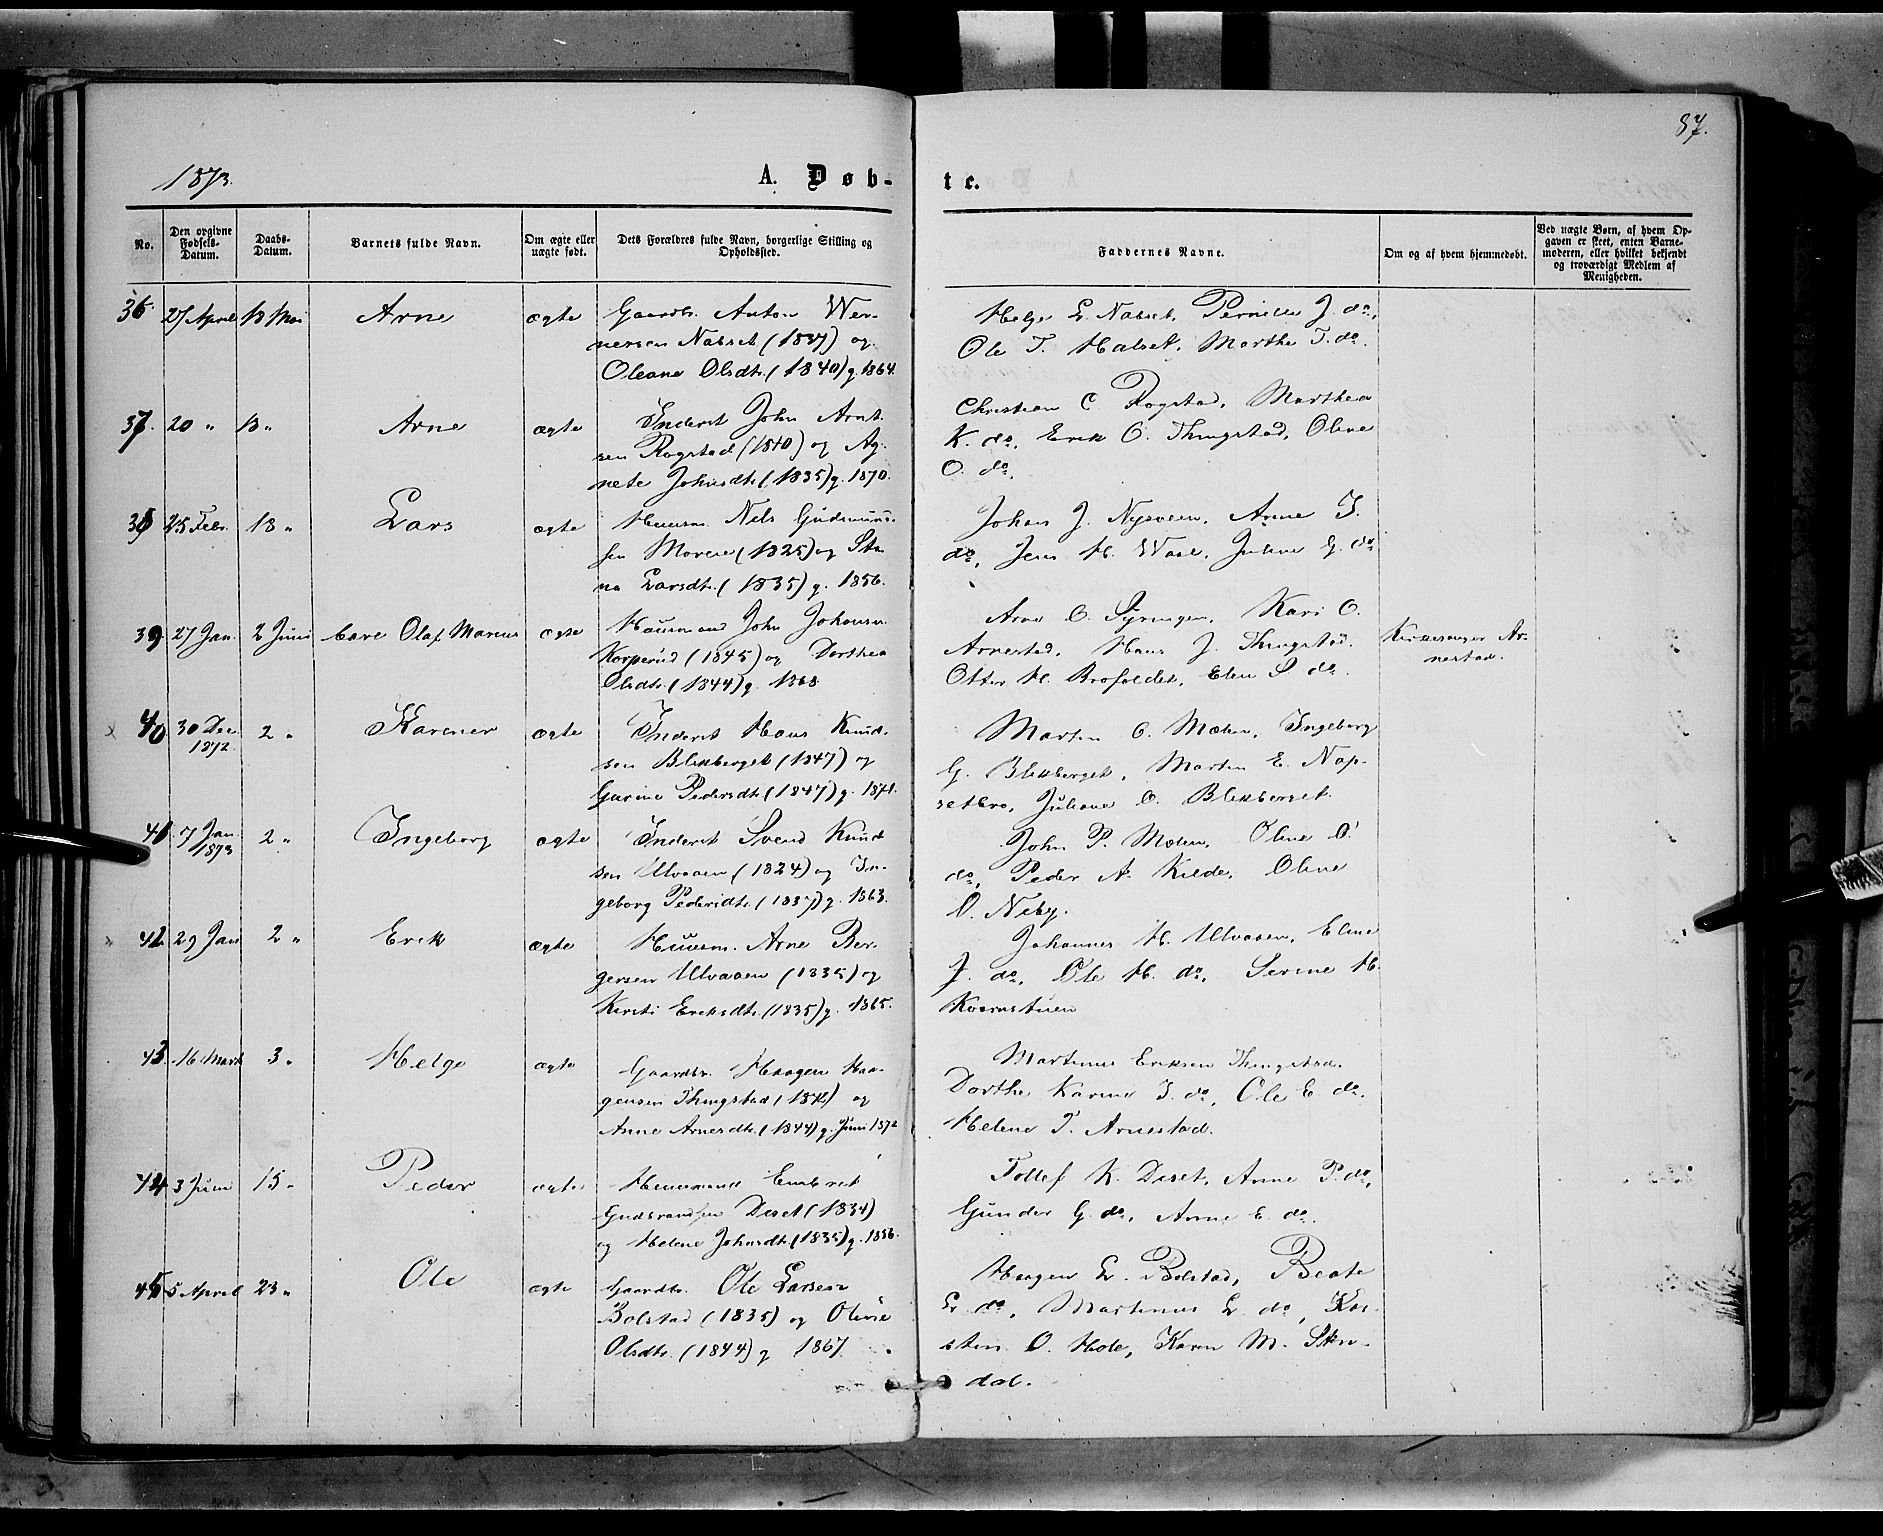 87.
1873.
A. Døb-
te.
No.
Den opgivne Fødsels-Datum.
Daabs-Datum.
Barnets fulde Navn.
Om ægte eller uægte født.
Dets Forældres fulde Navn, borgerlige Stilling og Opholdssted.
Faddernes Navne.
Om og af hvem hjemmedøbt.
Ved uægte Børn, af hvem Opgaven er skeet, enten Barnemoderen, eller hvilket bekjendt og troværdigt Medlem af Menigheden.
36. 27 April 18 Mai Arne ægte
Gaardbr. Anton Wer-
nersen Nabset (1837) og
Oleane Olsdtr. (1840) g. 1864.
Helge L. Nabset, Pernille J. do,
Ole T. Halset, Marthe T. do.
37. 20 " 18 " Arne ægte
Inderst John Arnt-
sen Rogstad (1840) og Ag-
nete Johnsdtr. (1835) g. 1870.
Christian C. Rogstad, Marthea
K. do, Erik O. Thingstad, Oline
O. do.
38 25 Febr. 18 " Lars ægte
Huusm. Nels Gudmund-
sen Moren (1825) og Sti-
na Larsdtr. (1835) g. 1856.
Johan J. Nysveen, Anne I.
do, Jens H. Wael, Juline G. do
39. 27 Jan. 2 Juni Care Olaf Marius ægte
Huusmand John Johansn.
Korperud (1845) og Dorthea
Olsdtr. (1844) g. 1868
Arne O. Syringen, Kari O.
Arnestad, Hans J. Thingstad,
Otter H. Brofoldet, Elen S. do.
Kirkesanger Ar-
nestad.
40 30 Dec 1872 2 " Karener ægte
Inderst Hans Knud-
sen Blekberget (1847) og
Gurine Pedersdtr. (1847) g. 1871.
Marten O. Moten, Ingeborg
G. Blekberget, Marten E. Nap-
setbro, Juliane O. Blekberget.
41 7 Jan 1873 2 " Ingeborg ægte
Inderst Svend Knud
sen Ulvaaen (1824) og In-
geborg Pedersdtr. (1837) g. 1863.
John P. Moten, Oline O.
do, Peder A. Kilde, Oline
O. Neby.
42. 29 Jan 2 " Erik ægte
Huusm. Arne Ber-
gersen Ulvaaen (1835) og
Kirsti Eriksdtr. (1835) g. 1865.
Johannes H. Ulvaaen, Eline
J. do, Ole H. do, Serine H.
Kvernstuen
43 16 Marts 3 " Helge ægte
Gaardbr. Haagen Haa-
gensen Thingstad (1842) og
Anne Arnesdtr. (1844) g. Juni 1872
Martinus Eriksen Thingstad,
Dorthe Karine I. do, Ole E. do.
Helene T. Arnestad.
44 3 Juni 15 " Peder ægte
Huusmand Embret
Gudbrandsen Deset (1834)
og Helene Johnsdtr. (1835) g. 1856.
Tollef K. Deset, Anne P. do,
Gunder G. do, Anne E. do.
45 5 April 23 " Ole ægte
Gaardbr. Ole Larsen
Bolstad (1835) og Oline
Olsdtr. (1844) g 1867.
Haagen L. Bolstad, Beate
L. do, Martinus L. do, Kar-
sten O. Hole, Karen M. Skre-
dal.